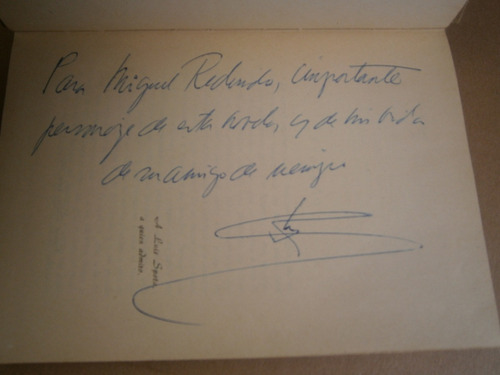 Para Miguel Redondo, importante
personaje de esta novela, y de mi vida
de su amigo de siempre
A Luis Sáenz,
a quien admiro.